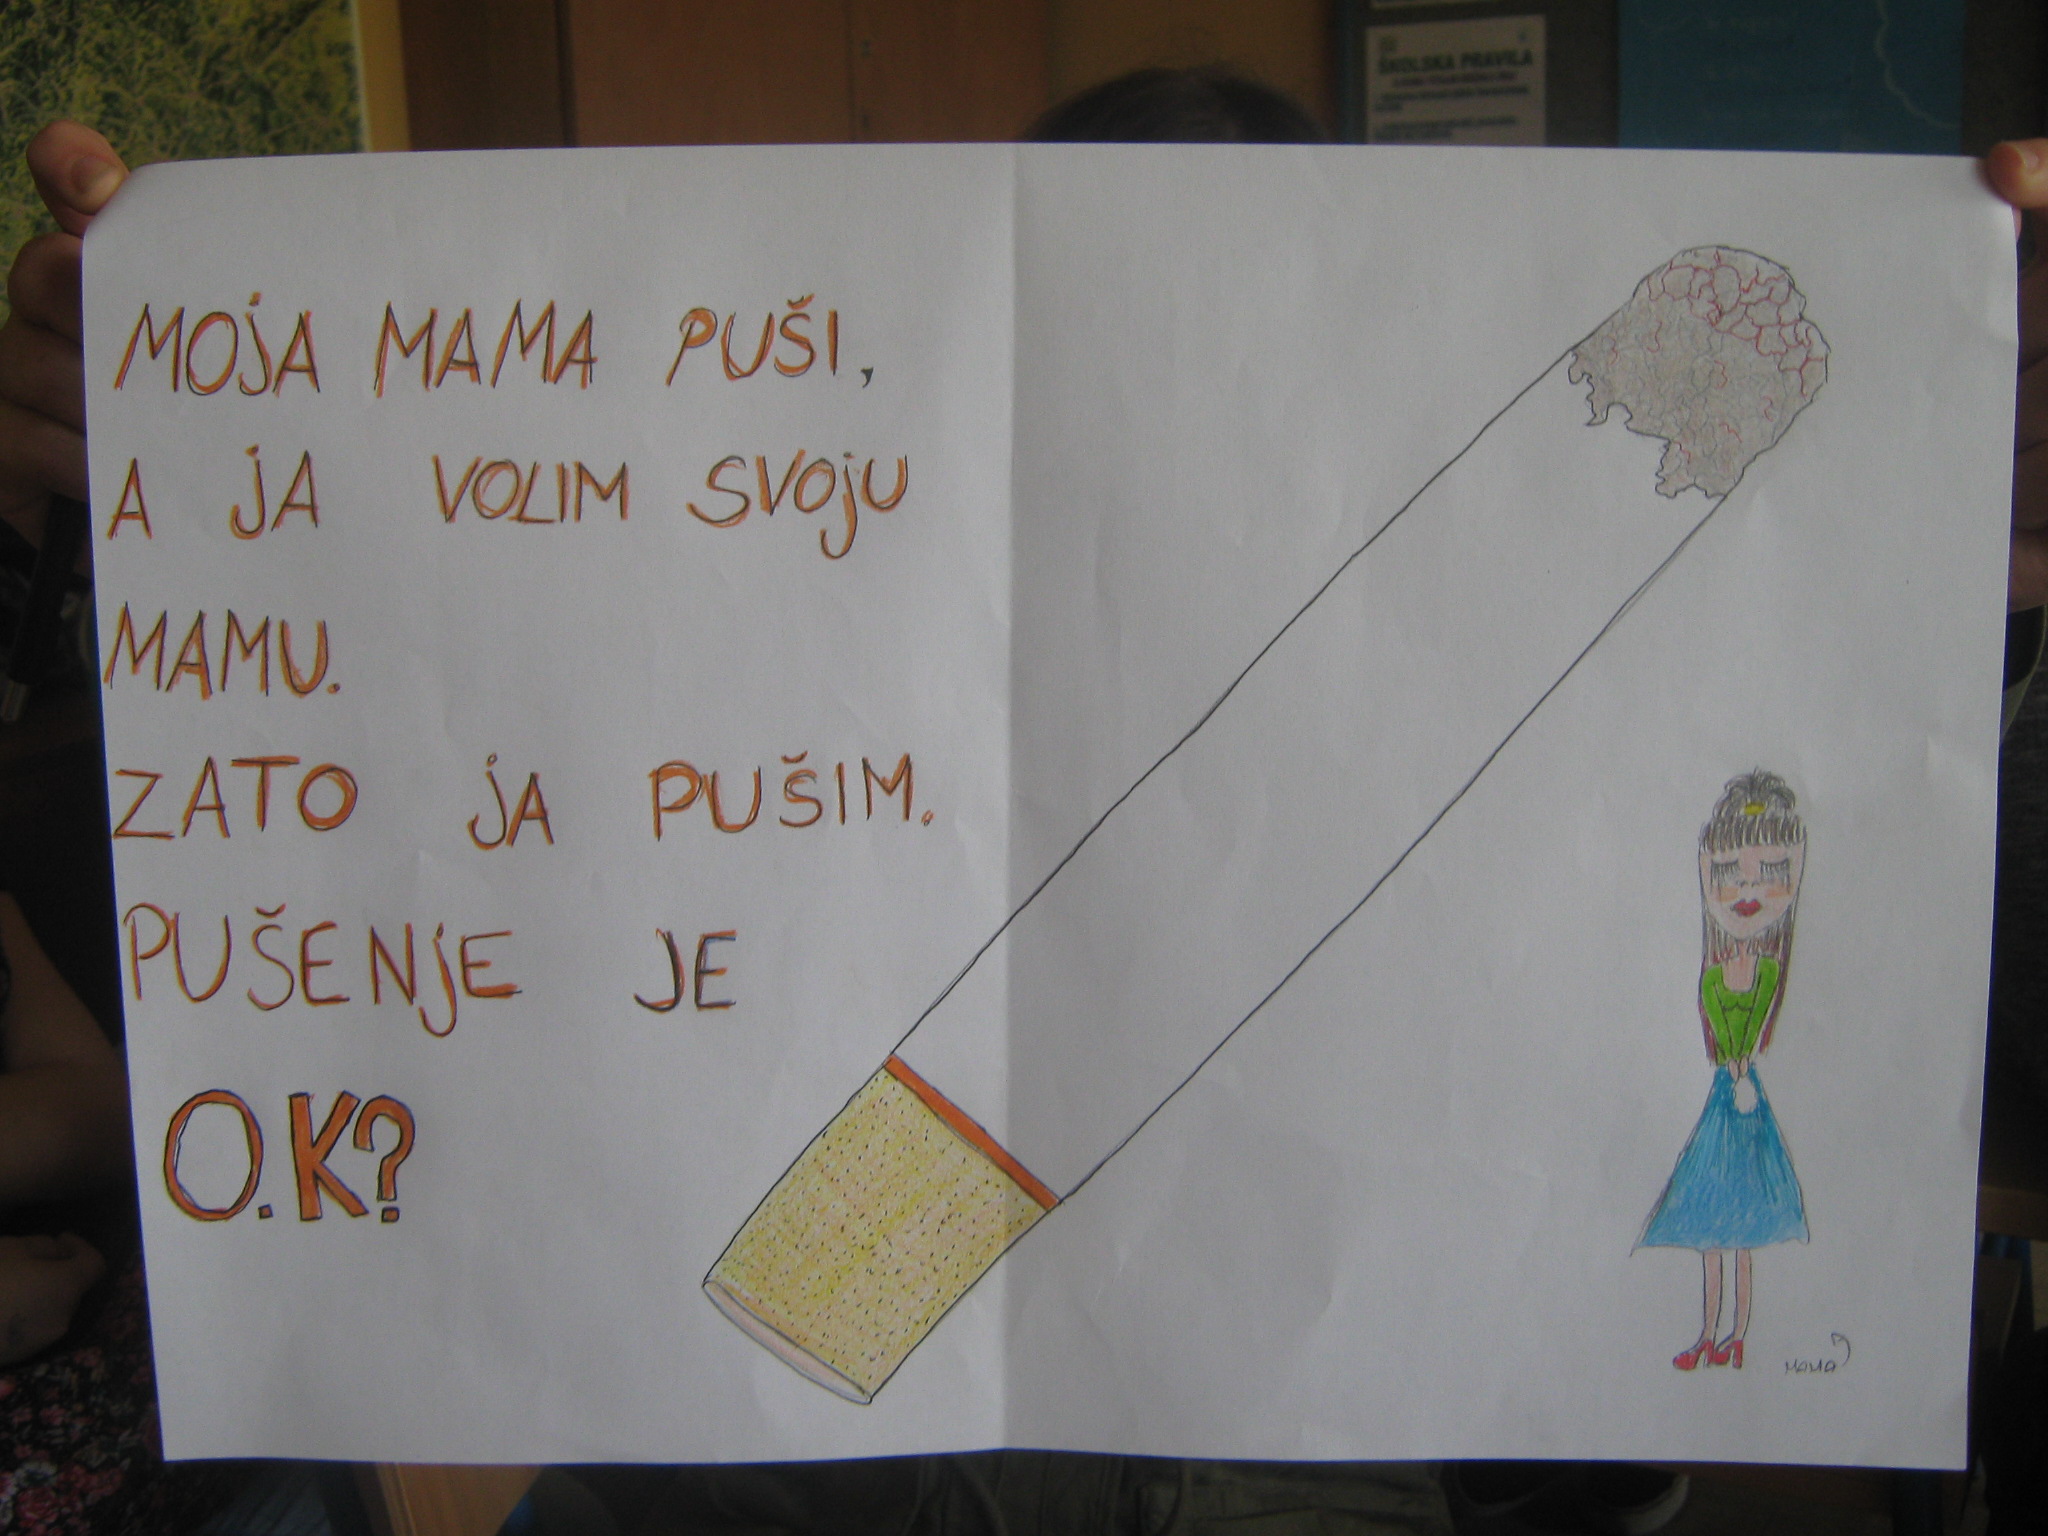 ŠKOLSKA PRAVILA
MOJA MAMA PUŠI,
A JA VOLIM SVOJU
MAMU.
ZATO JA PUŠIM.
PUŠENJE JE
O.K?
MaMa